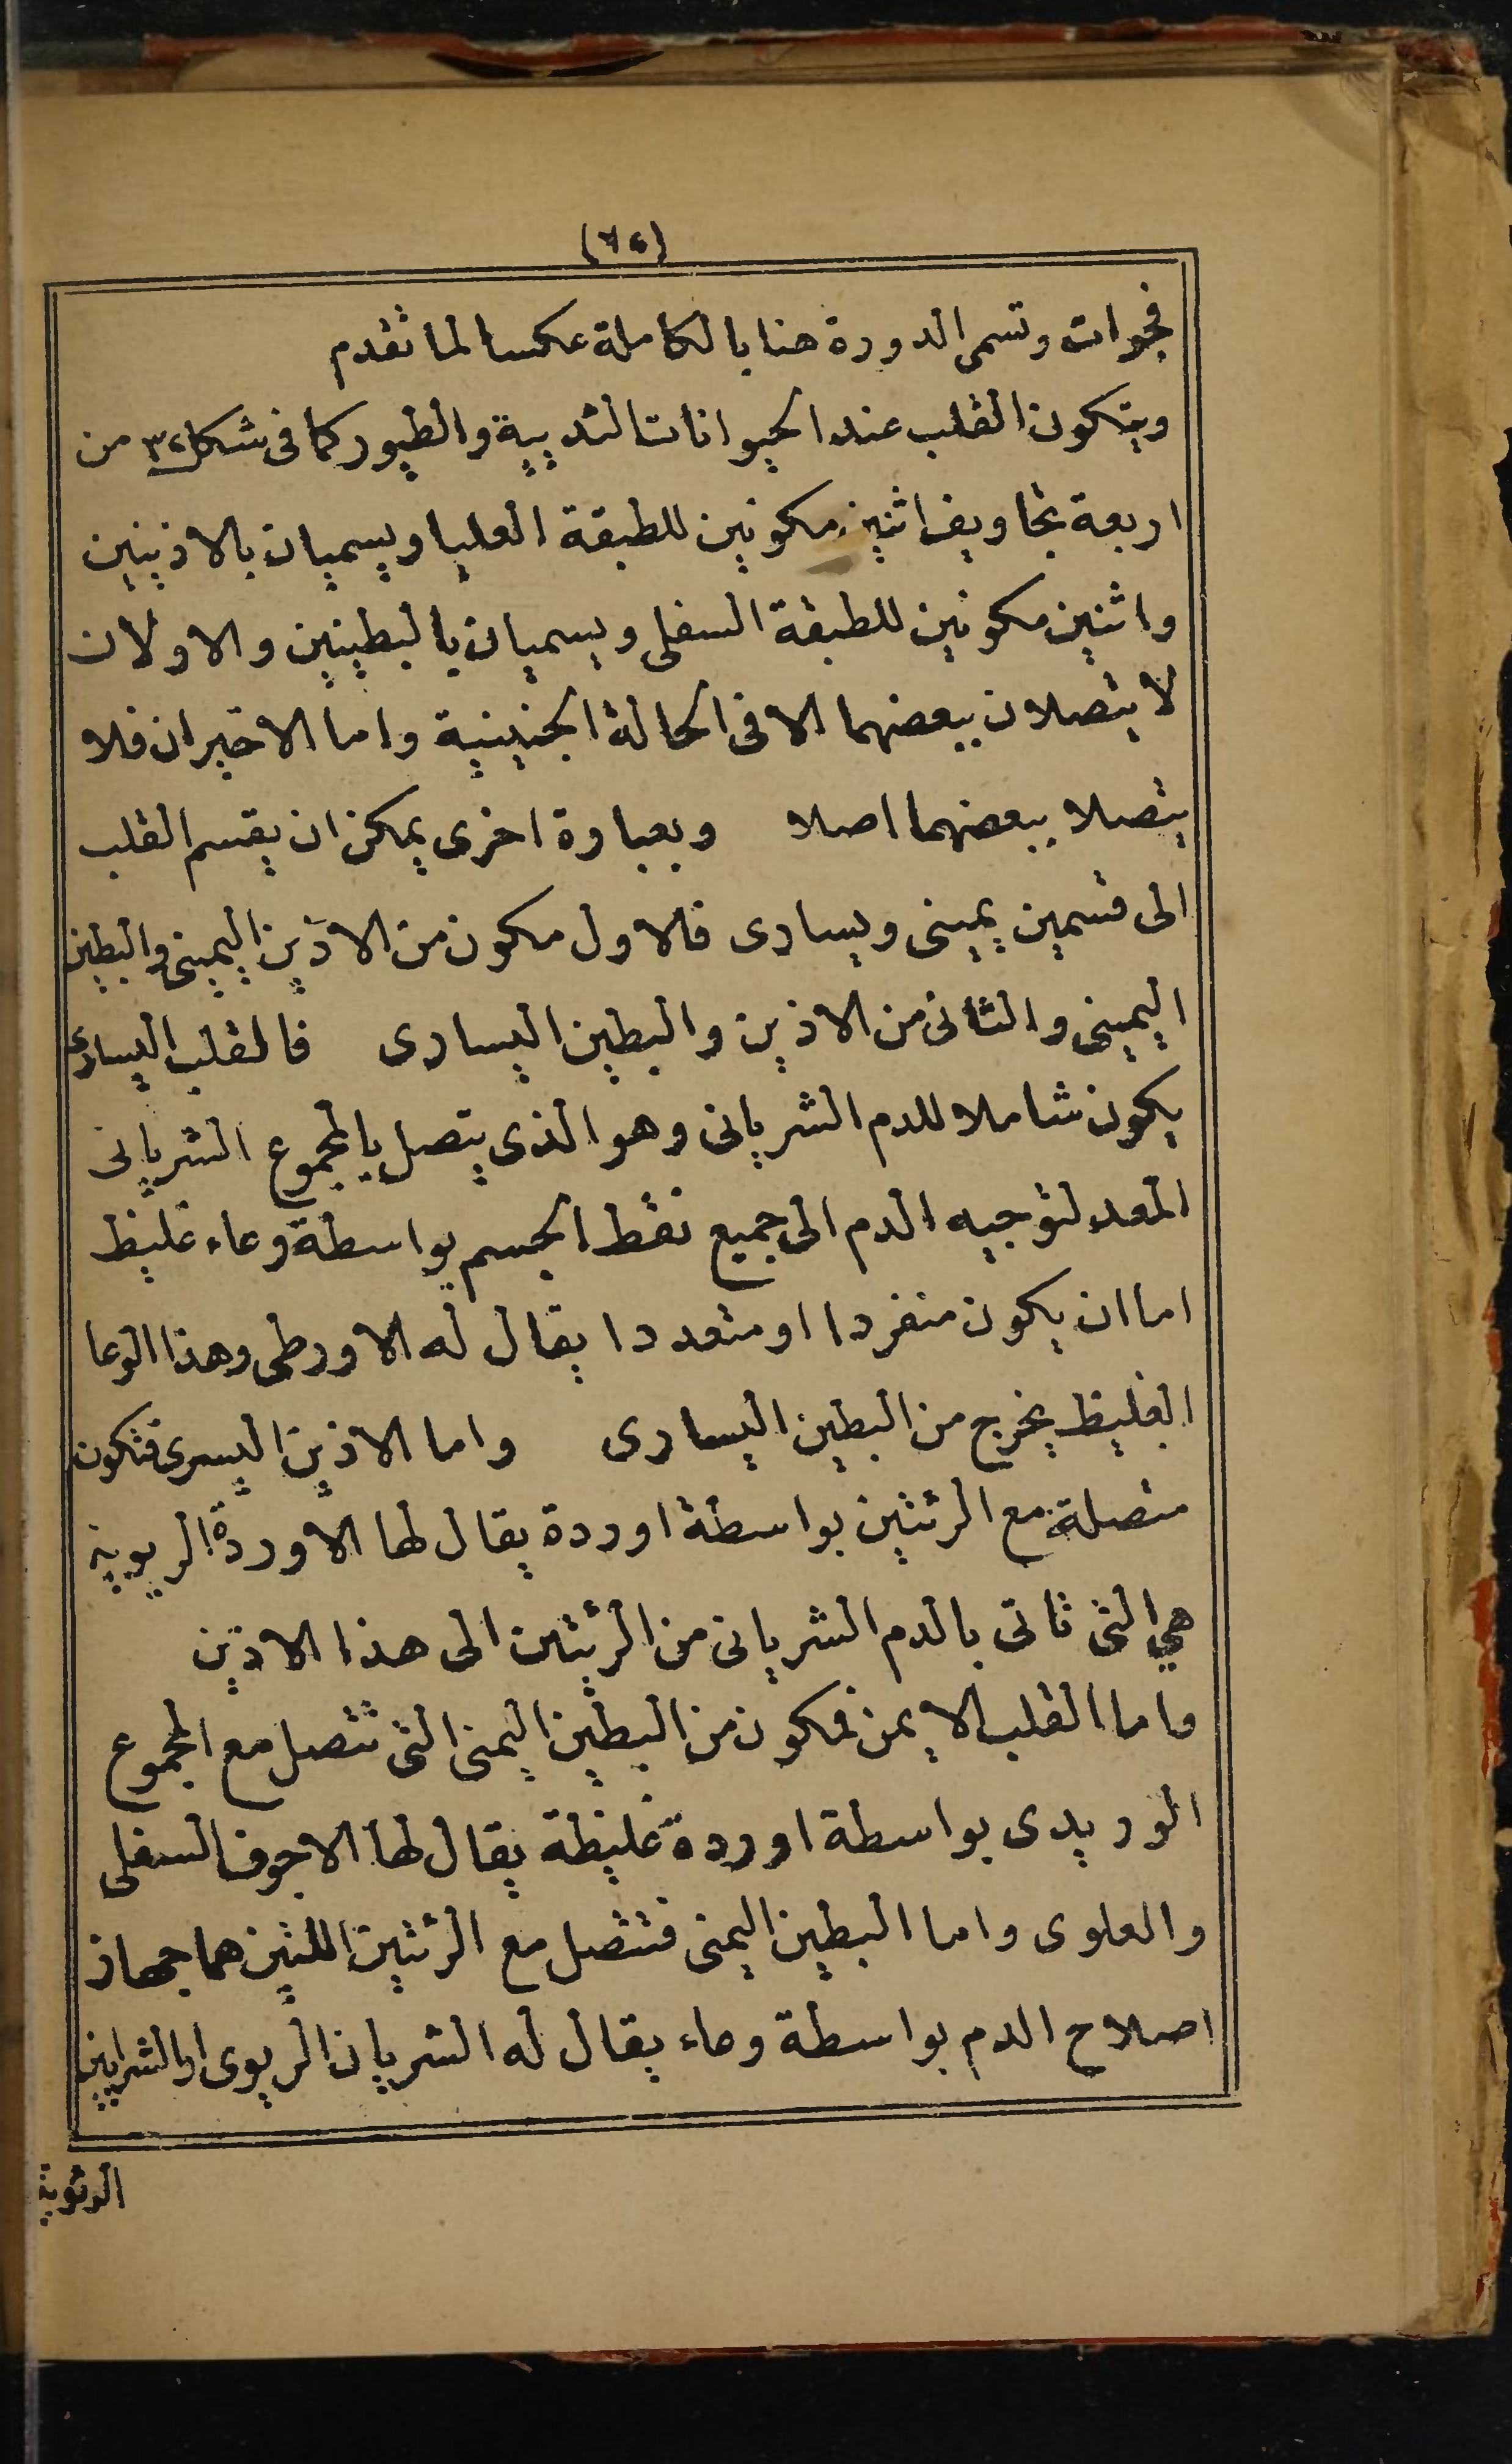 (٧٤)
فجوات وتسمى الدورة هنا بالكاملة عكسا لما تقدم
ويتكون القلب عند الحيوانات الثديية والطيور كما فى شكل ٣٤ من
اربعة تجاويف اثنين مكونين للطبقة العليا ويسميان بالاذنيين
واثنين مكونين للطبقة السفلى ويسميان بالبطينين والاولان
لا يتصلان ببعضهما الا فى الحالة الجنينية واما الاخيران فلا
يتصلا ببعضهما اصلا وبعبارة اخرى يمكن ان يقسم القلب
الى قسمين يمينى ويسارى فالاول مكون من الاذين اليمينى والبطين
اليمينى والثانى من الاذين والبطين اليسارى فالقلب اليسارى
يكون شاملا للدم الشريانى وهو الذى يتصل بالمجموع الشريانى
المعد لتوجيه الدم الى جميع نقط الجسم بواسطة وعاء غليظ
اما ان يكون منفردا او متعددا يقال له الاورطى وهذا الوعا
الغليظ يخرج من البطين اليسارى واما الاذين اليسرى فتكون
متصلة مع الرئتين بواسطة اوردة يقال لها الاوردة الريوية
هي التى تاتى بالدم الشريانى من الرئتين الى هذا الاذين
واما القلب الايمن فمكون من البطين اليمنى التى تتصل مع المجموع
الوريدى بواسطة اوردة غليظة يقال لها الاجوف السفلى
والعلوى واما البطين اليمنى فتتصل مع الرئتين اللتين هما جهاز
اصلاح الدم بواسطة وعاء يقال له الشريان الريوى او الشرايين
الرئوية